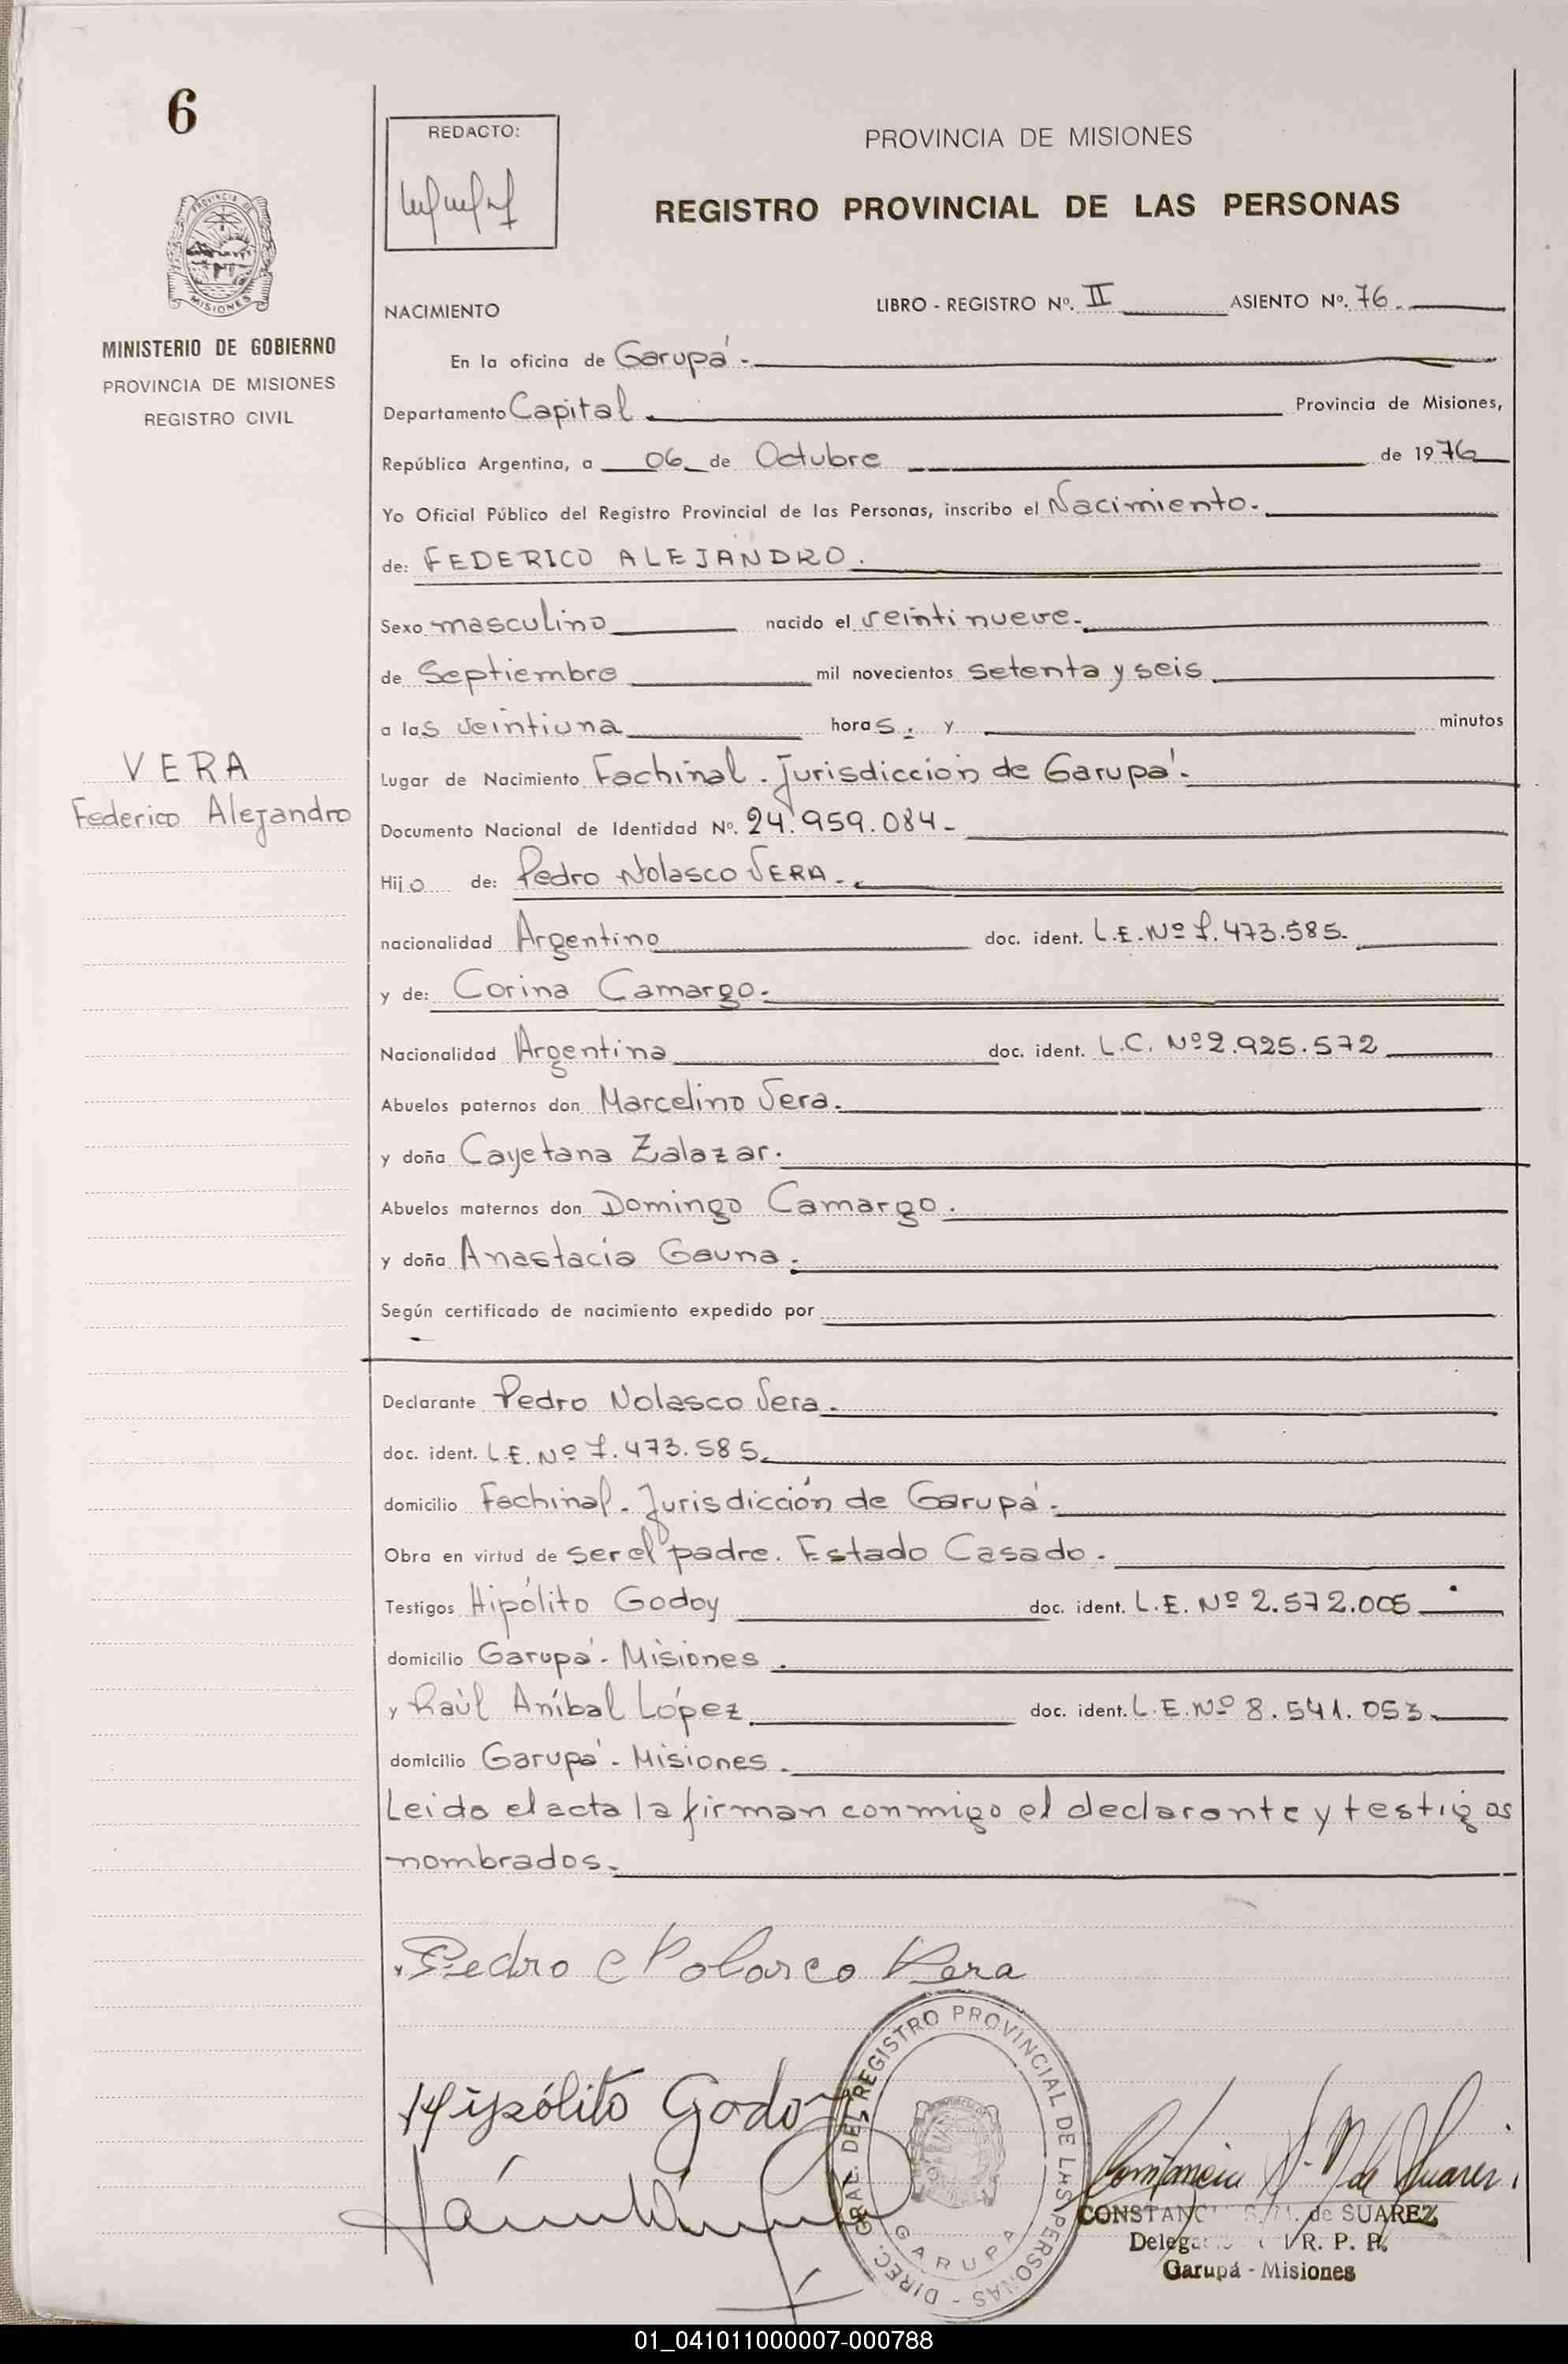 6
REDACTO:
PROVINCIA DE MISIONES
REGISTRO PROVINCIAL DE LAS PERSONAS
PROVINCIA DE
MISIONES
MINISTERIO DE GOBIERNO
PROVINCIA DE MISIONES
REGISTRO CIVIL
NACIMIENTO LIBRO - REGISTRO Nº. II ASIENTO Nº. 76.
En la oficina de Garupá.
Departamento Capital. Provincia de Misiones,
República Argentina, a 06 de Octubre de 1976
Yo Oficial Público del Registro Provincial de las Personas, inscribo el Nacimiento.
de: FEDERICO ALEJANDRO.
Sexo masculino nacido el veintinueve.
de Septiembre mil novecientos setenta y seis
a las veintiuna horas. y minutos
VERA
Federico Alejandro
Lugar de Nacimiento Fachinal. Jurisdicción de Garupá.
Documento Nacional de Identidad Nº. 24.959.084-
Hijo de: Pedro Nolasco VERA.
nacionalidad Argentino doc. ident. L.E. Nº 7.473.585.
y de: Corina Camargo.
Nacionalidad Argentina doc. ident. L.C. Nº 2.925.572
Abuelos paternos don Marcelino Vera.
y doña Cayetana Zalazar.
Abuelos maternos don Domingo Camargo.
y doña Anastacia Gauna.
Según certificado de nacimiento expedido por
Declarante Pedro Nolasco Vera.
doc. ident. L.E. Nº 7.473.585.
domicilio Fachinal. Jurisdicción de Garupá.
Obra en virtud de ser el padre. Estado Casado.
Testigos Hipólito Godoy doc. ident. L.E. Nº 2.572.005
domicilio Garupá - Misiones.
y Raúl Aníbal López doc. ident. L.E. Nº 8.541.053.
domicilio Garupá - Misiones.
Leido el acta la firman conmigo el declarante y testigos
nombrados.
Pedro Nolasco Vera
Hipólito Godoy
DIREC. GRAL. DEL REGISTRO PROVINCIAL DE LAS PERSONAS -
GARUPA
Constancia S. M. de Suarez.
de SUAREZ
R. P. P.
Garupá - Misiones
01_041011000007-000788